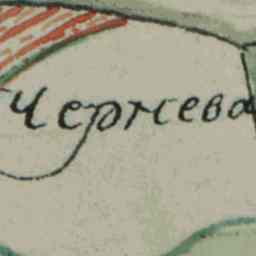 Чернева